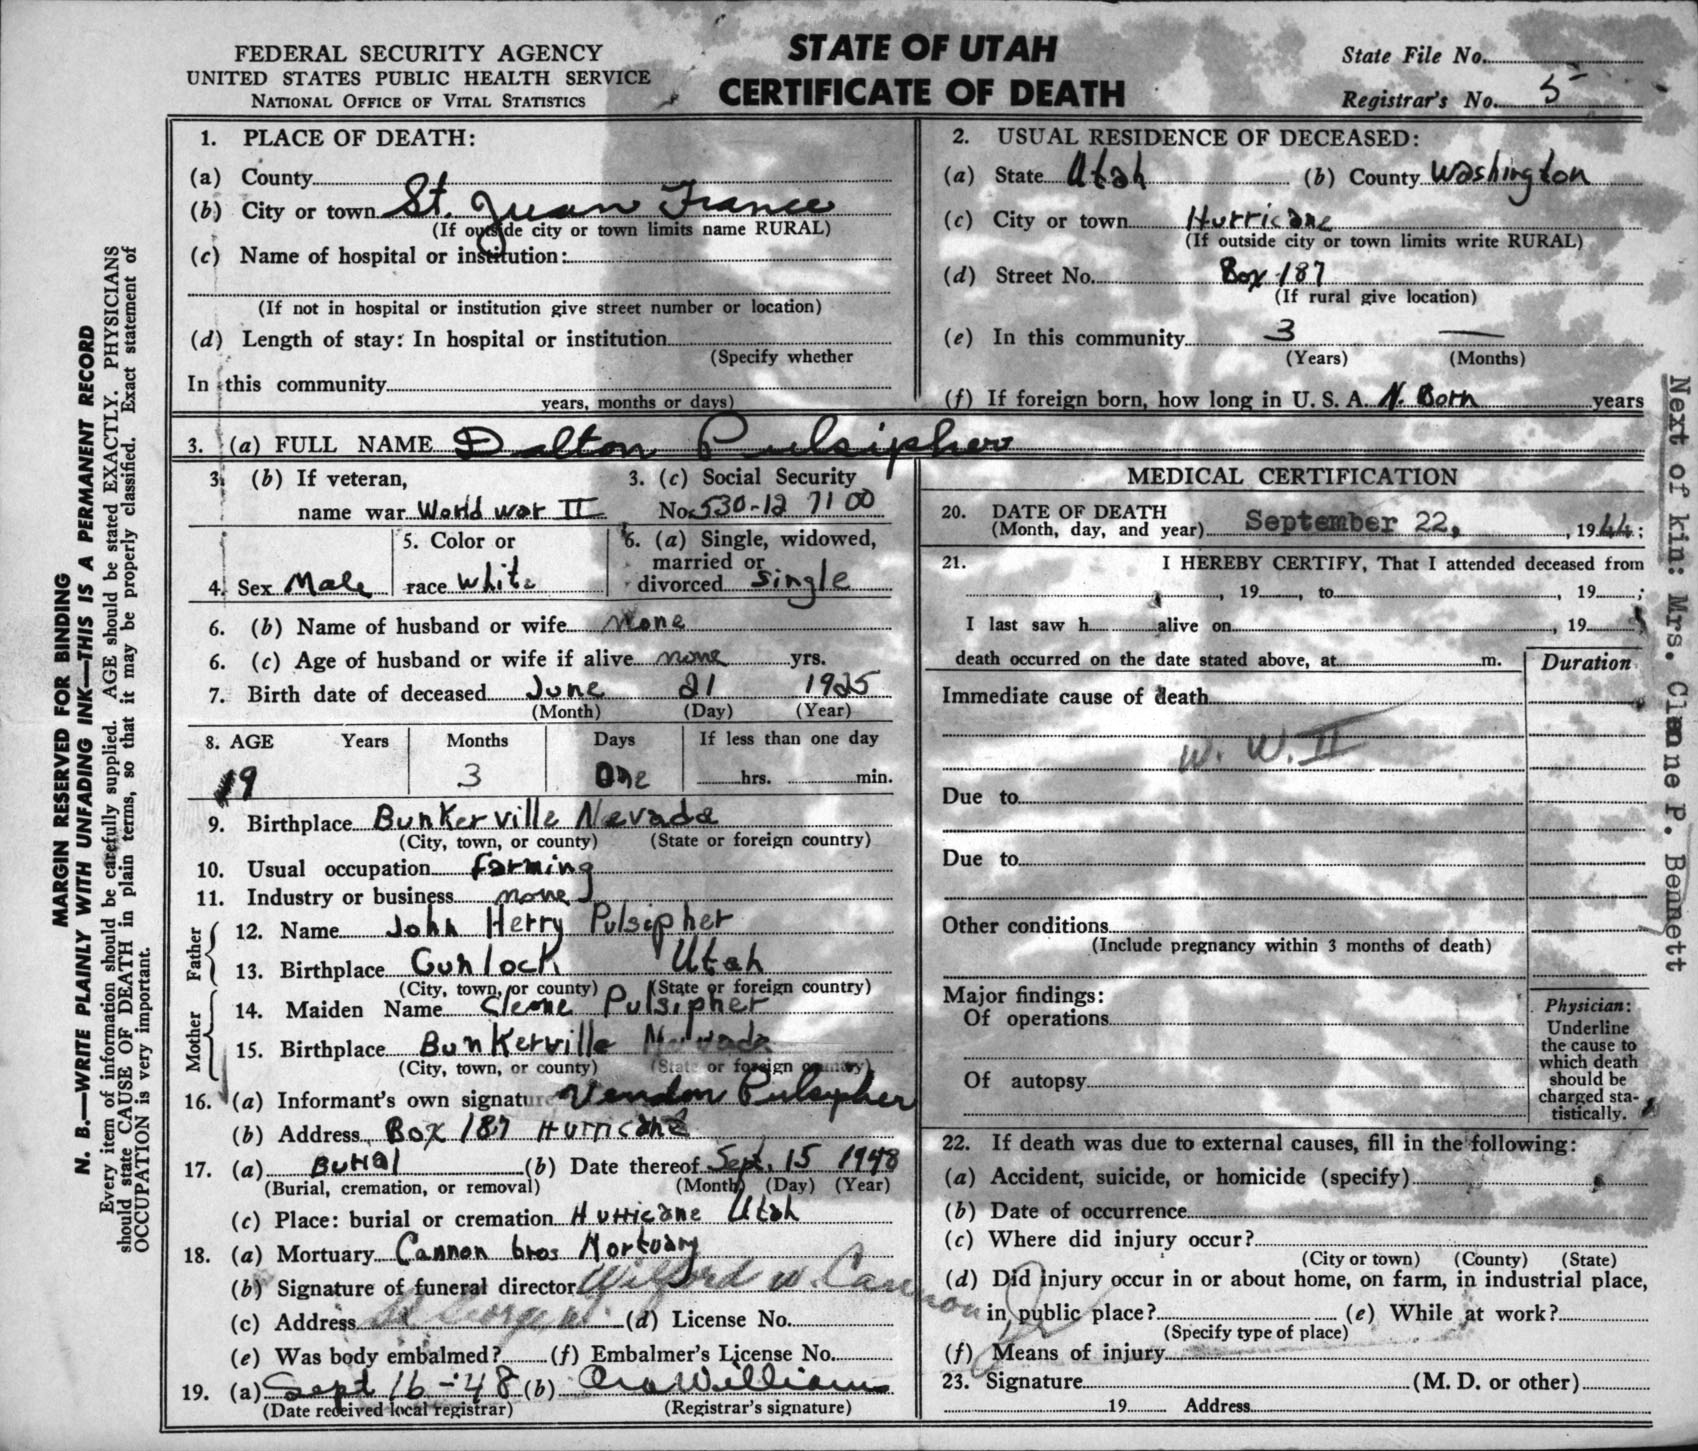 FEDERAL SECURITY AGENCY
UNITED STATES PUBLIC HEALTH SERVICE
NATIONAL OFFICE OF VITAL STATISTICS
STATE OF UTAH
CERTIFICATE OF DEATH
State File No.
Registrar's No. 5
1. PLACE OF DEATH:
(a) County
(b) City or town St. Juan France
(If outside city or town limits name RURAL)
(c) Name of hospital or institution:
(If not in hospital or institution give street number or location)
(d) Length of stay: In hospital or institution
(Specify whether
In this community
years, months or days)
2. USUAL RESIDENCE OF DECEASED:
(a) State Utah (b) County Washington
(c) City or town Hurricane
(If outside city or town limits write RURAL)
(d) Street No. Box 187
(If rural give location)
(e) In this community 3 —
(Years) (Months)
(f) If foreign born, how long in U. S. A. N. Born years
3. (a) FULL NAME Dalton Pulsipher
3. (b) If veteran,
name war World war II
3. (c) Social Security
No. 530-12 7100
4. Sex Male
5. Color or
race white
6. (a) Single, widowed,
married or
divorced single
6. (b) Name of husband or wife none
6. (c) Age of husband or wife if alive none yrs.
7. Birth date of deceased June 21 1925
(Month) (Day) (Year)
8. AGE Years Months Days If less than one day
19 3 One hrs. min.
9. Birthplace Bunkerville Nevada
(City, town, or county) (State or foreign country)
10. Usual occupation Farming
11. Industry or business none
Father
12. Name John Herry Pulsipher
13. Birthplace Gunlock Utah
(City, town, or county) (State or foreign country)
Mother
14. Maiden Name Cleone Pulsipher
15. Birthplace Bunkerville Nevada
(City, town, or county) (State or foreign country)
16. (a) Informant's own signature Vendon Pulsipher
(b) Address Box 187 Hurricane
17. (a) Burial (b) Date thereof Sept. 15 1948
(Burial, cremation, or removal) (Month) (Day) (Year)
(c) Place: burial or cremation Hurricane Utah
18. (a) Mortuary Cannon bros Mortuary
(b) Signature of funeral director Wilford W. Cannon Jr
(c) Address St George U. (d) License No.
(e) Was body embalmed? (f) Embalmer's License No.
19. (a) Sept 16-48 (b) Ora William
(Date received local registrar) (Registrar's signature)
MEDICAL CERTIFICATION
20. DATE OF DEATH
(Month, day, and year) September 22, , 1944;
21. I HEREBY CERTIFY, That I attended deceased from
, 19 , to , 19 ;
I last saw h alive on , 19 ;
death occurred on the date stated above, at m.
Duration
Immediate cause of death
W. W. II
Due to
Due to
Other conditions
(Include pregnancy within 3 months of death)
Major findings:
Of operations
Of autopsy
Physician:
Underline
the cause to
which death
should be
charged sta-
tistically.
22. If death was due to external causes, fill in the following:
(a) Accident, suicide, or homicide (specify)
(b) Date of occurrence
(c) Where did injury occur?
(City or town) (County) (State)
(d) Did injury occur in or about home, on farm, in industrial place,
in public place? (e) While at work?
(Specify type of place)
(f) Means of injury
23. Signature (M. D. or other)
19 Address
MARGIN RESERVED FOR BINDING
N. B.—WRITE PLAINLY WITH UNFADING INK—THIS IS A PERMANENT RECORD
Every item of information should be carefully supplied. AGE should be stated EXACTLY. PHYSICIANS
should state CAUSE OF DEATH in plain terms, so that it may be properly classified. Exact statement of
OCCUPATION is very important.
Next of kin: Mrs. Cleone P. Bennett